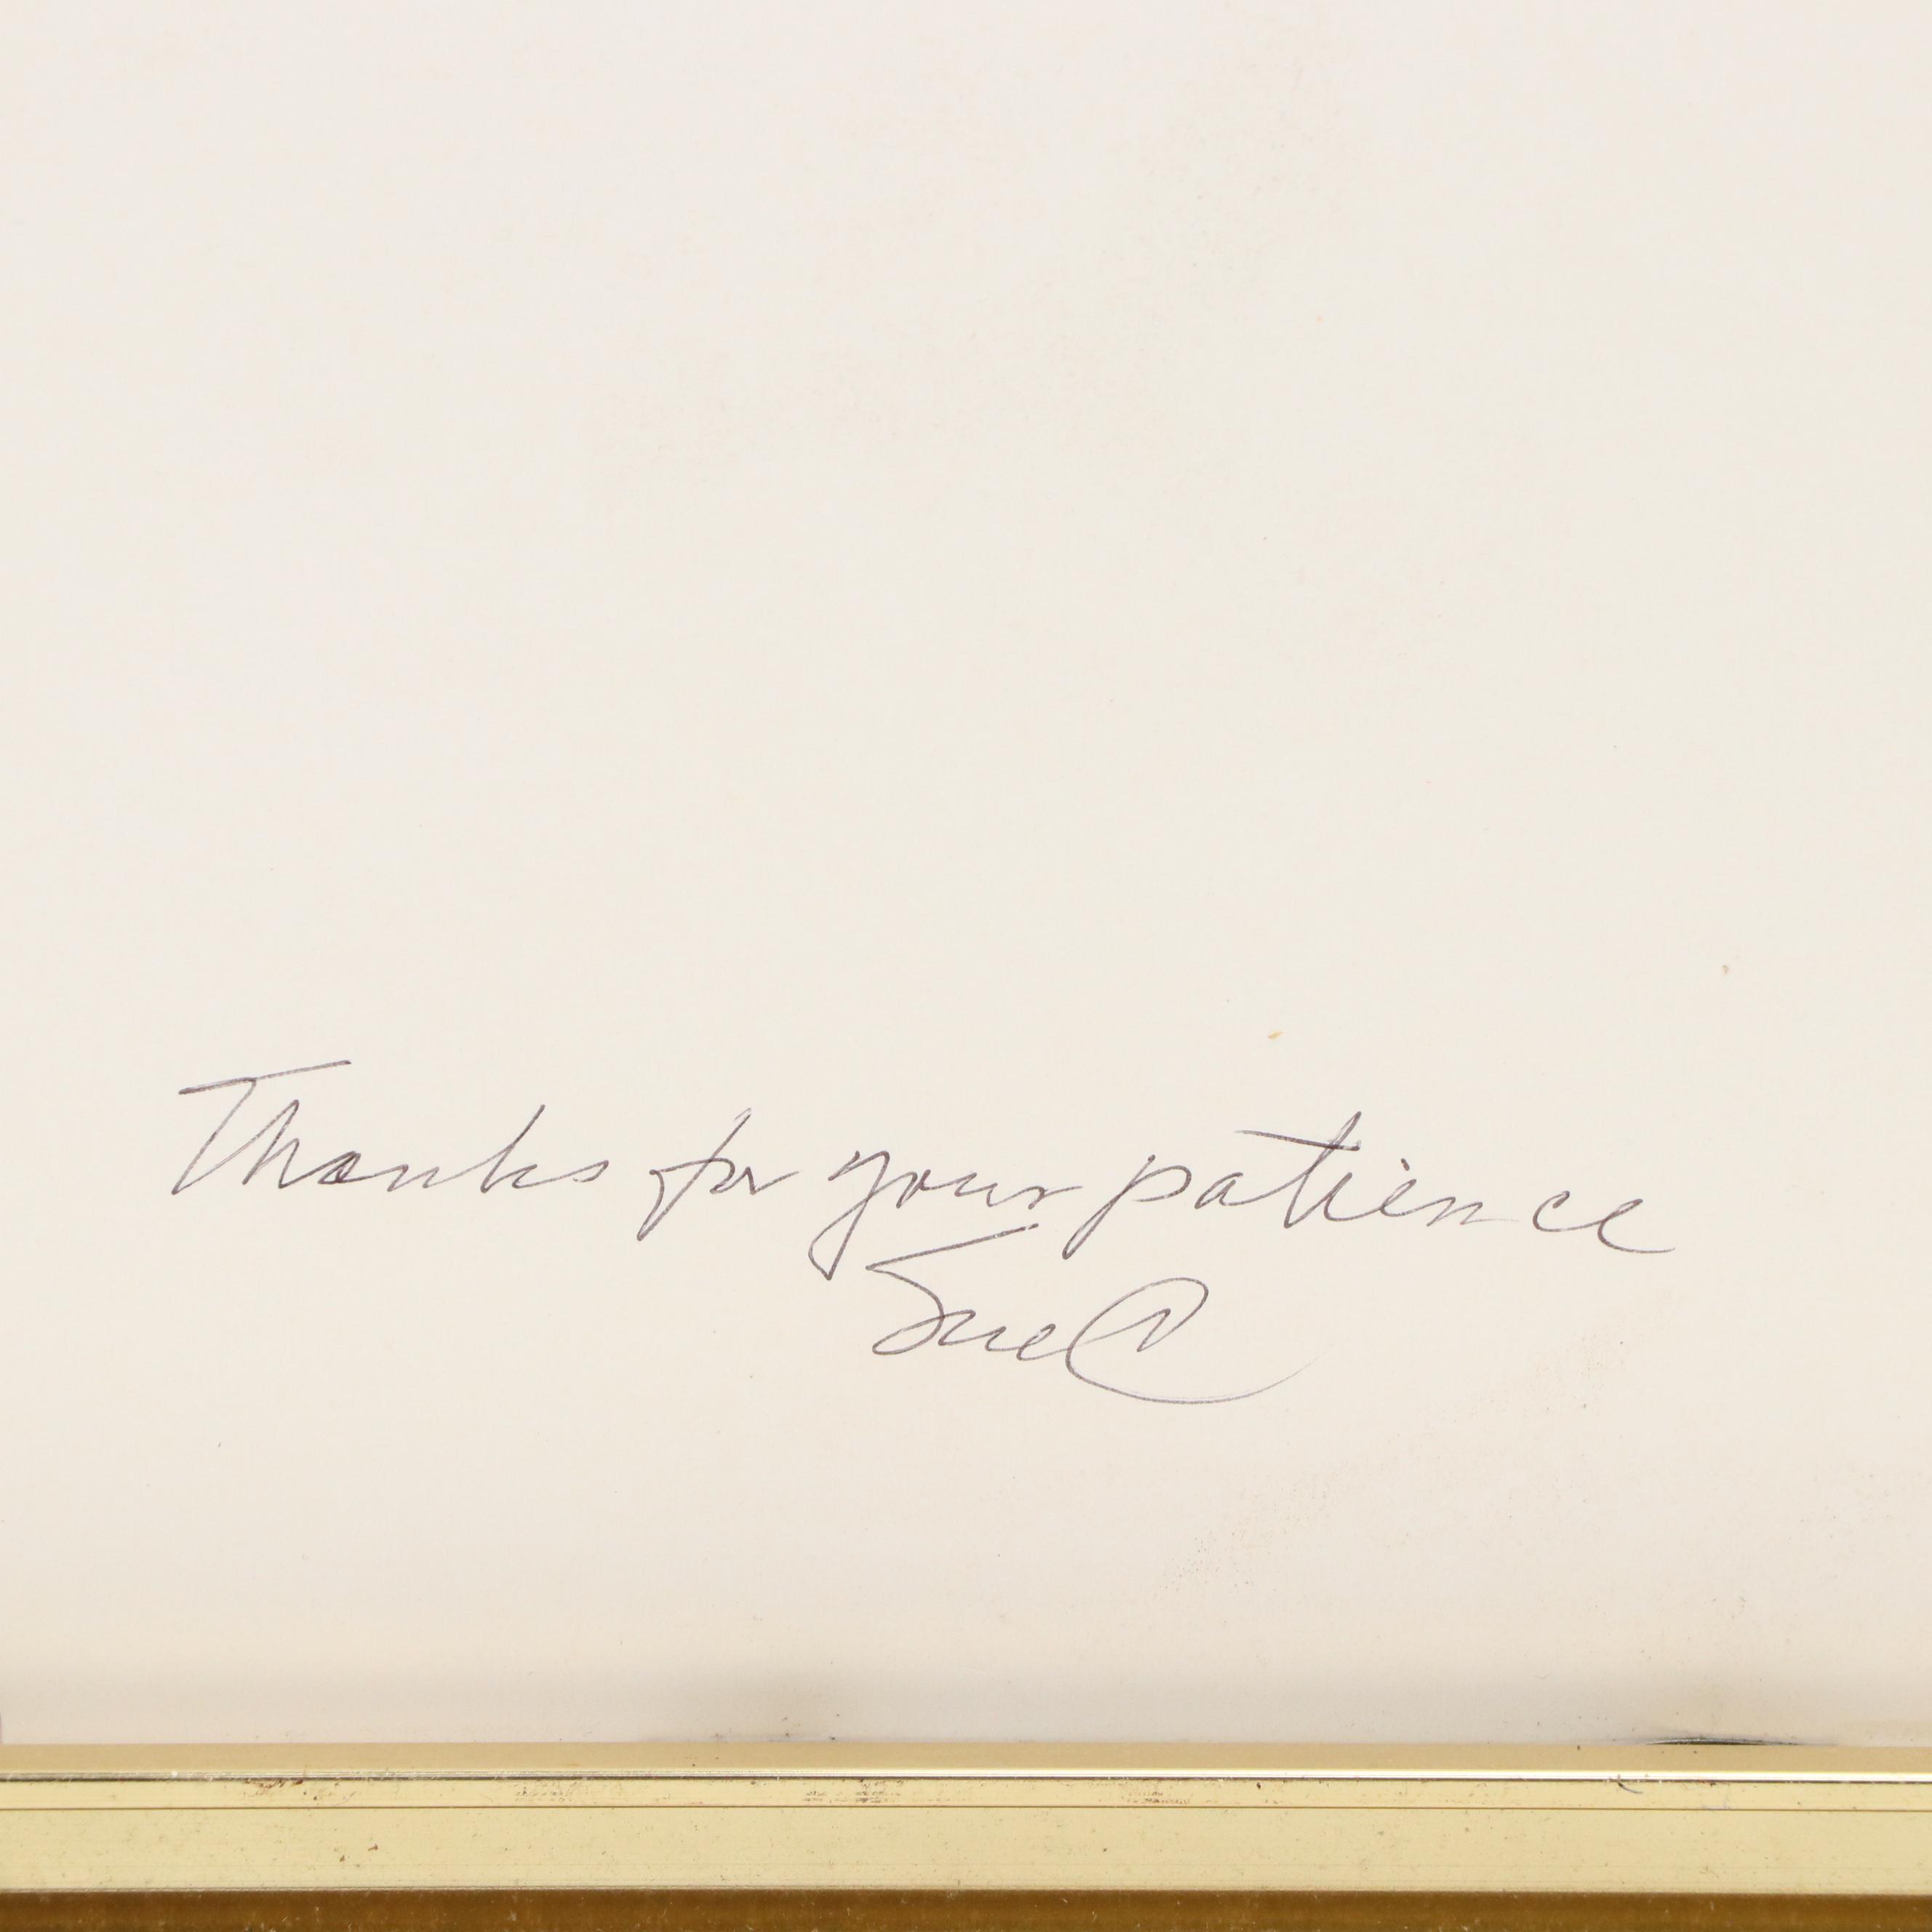 Thanks for your patience
Sue C